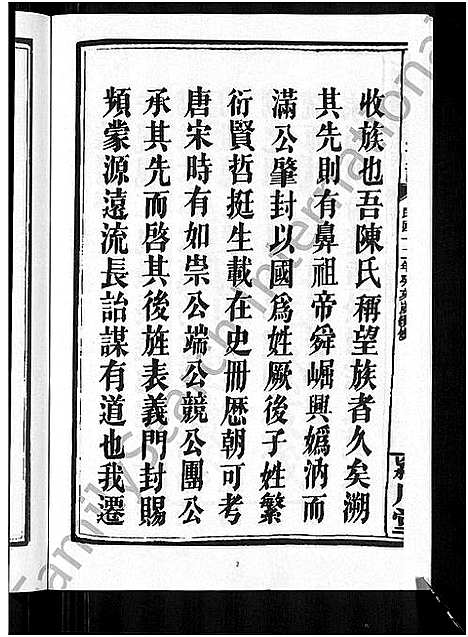 收族也吾陳氏稱望族者久矣溯
其先則有鼻祖帝舜崛興嬀汭而
滿公肇封以國爲姓厥後子姓繁
衍賢哲挺生載在史冊歷朝可考
唐宋時有如崇公端公競公團公
承其先而啓其後旌表義門封賜
頻蒙源遠流長詒謀有道也我遷
FamilySearch International